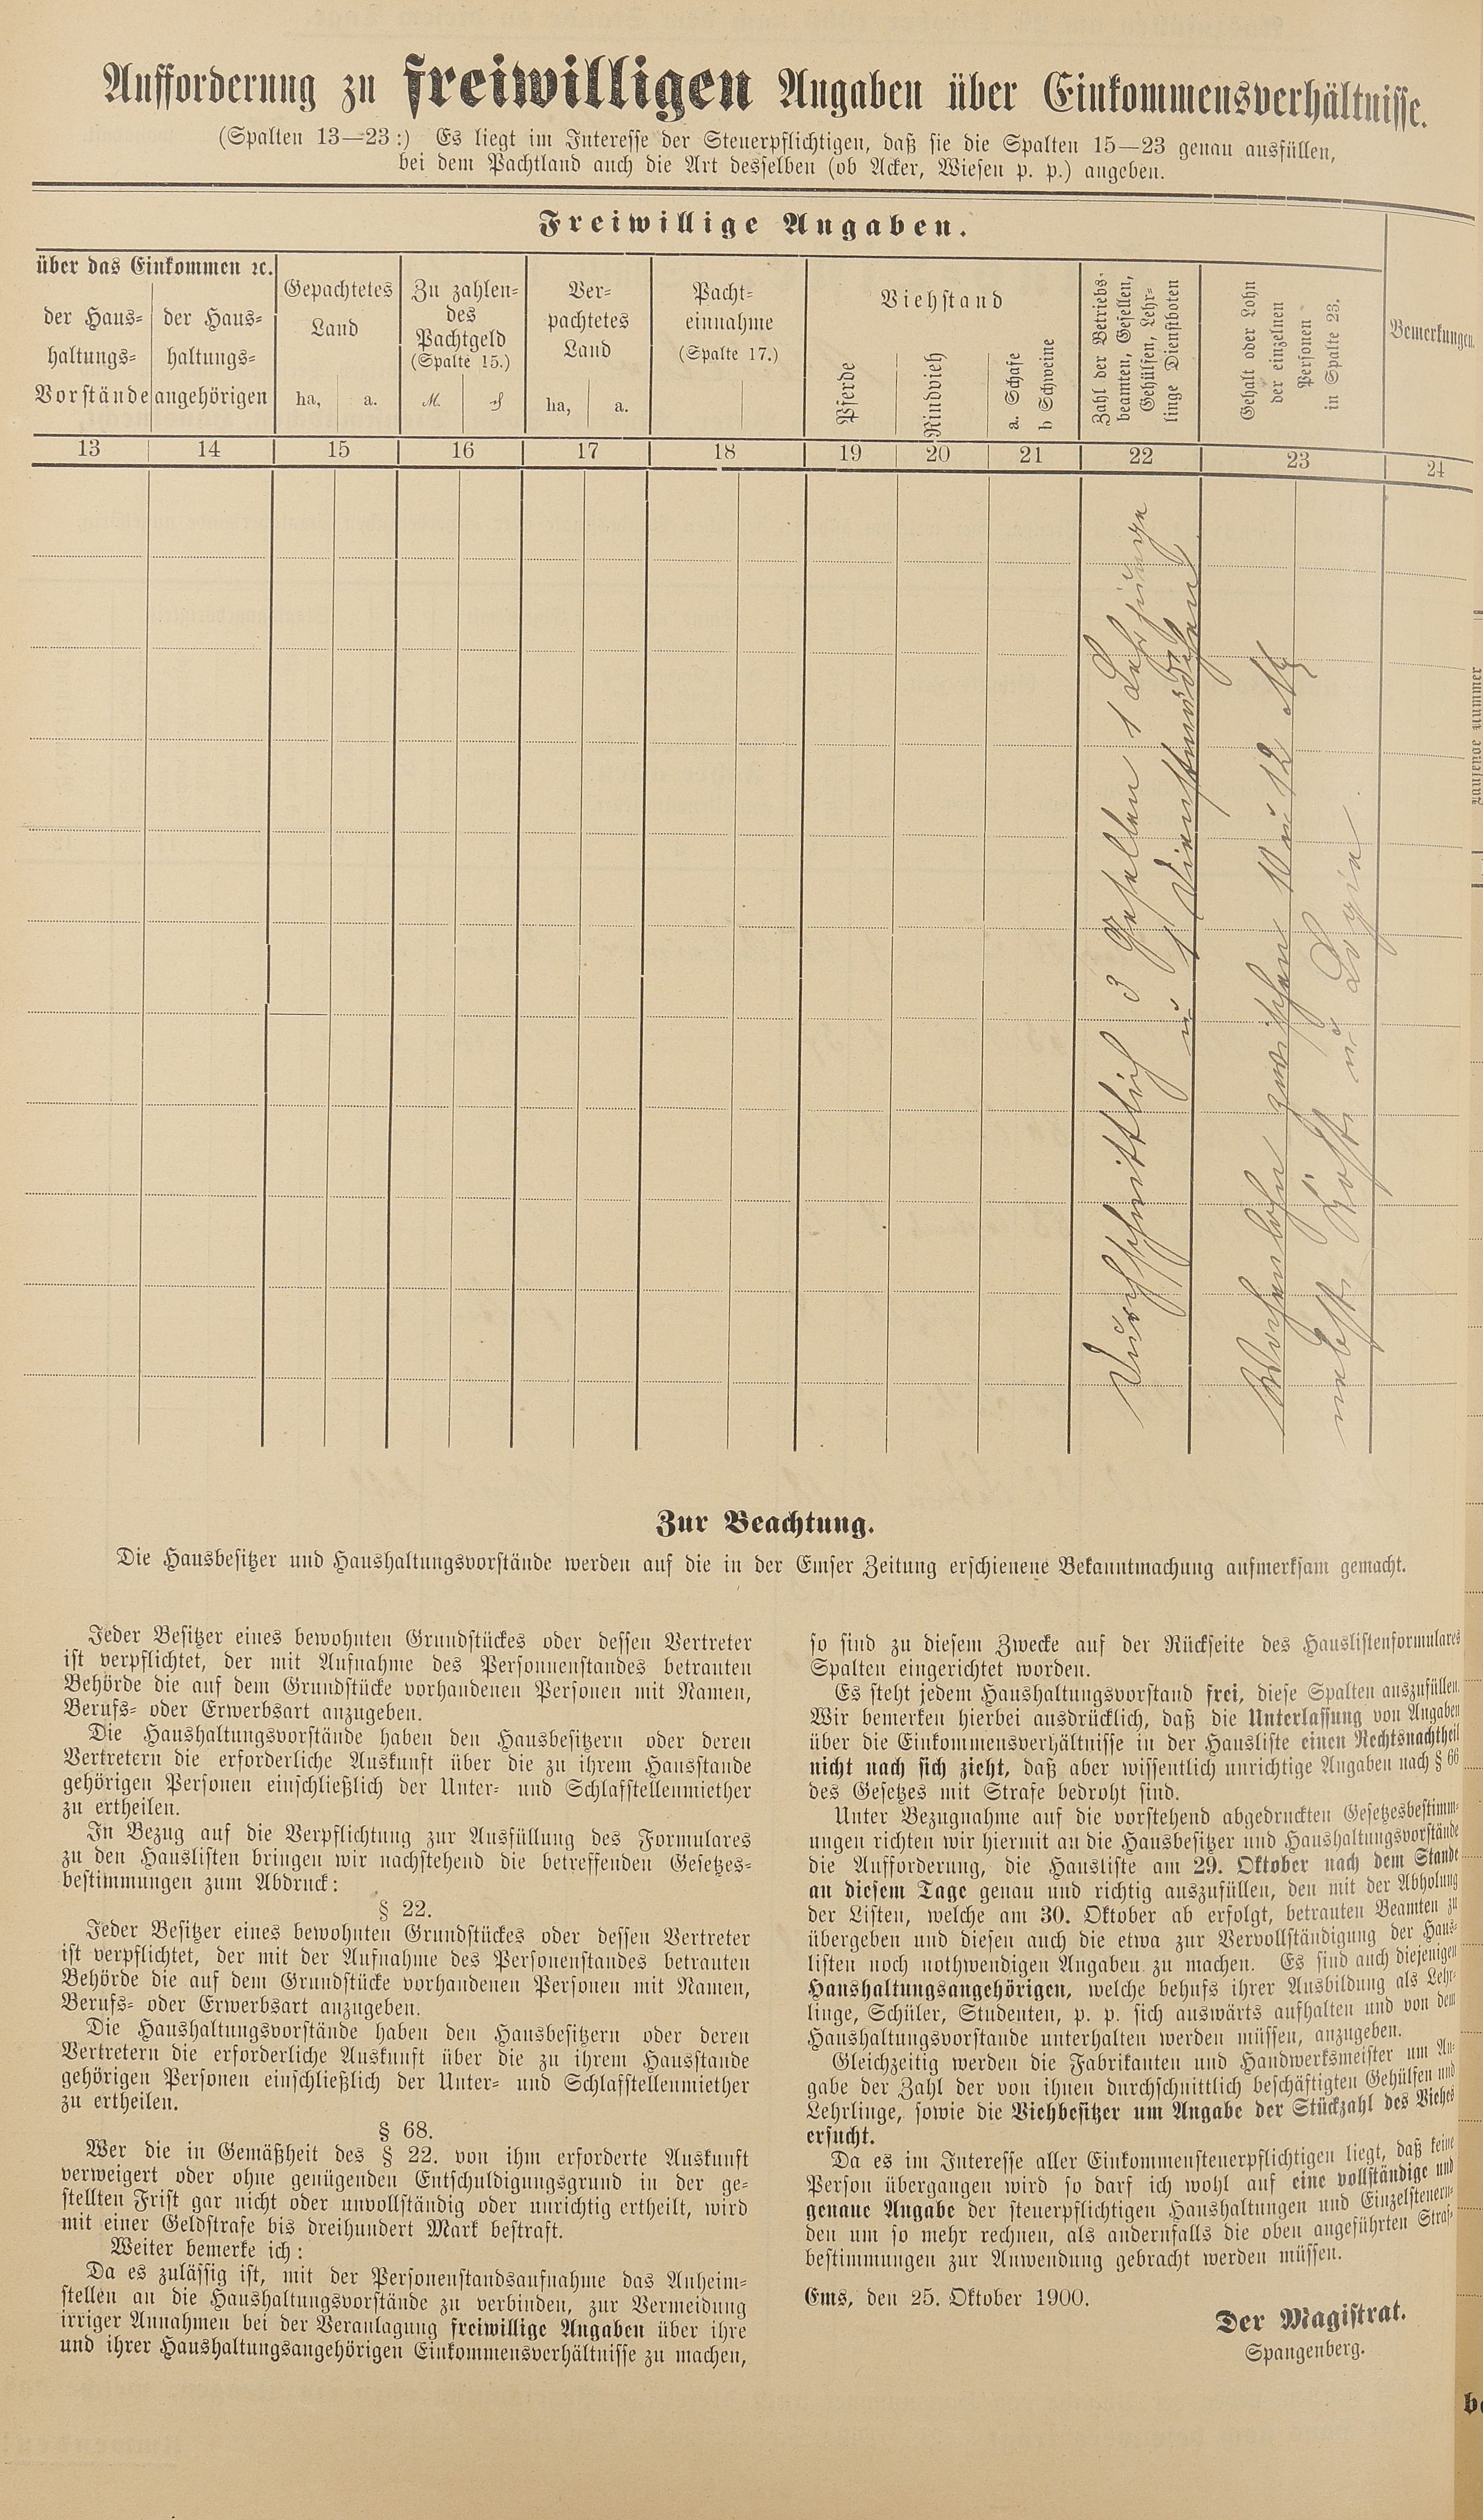 Aufforderung zu freiwilligen Angaben über Einkommensverhältnisse.
(Spalten 13—23:) Es liegt im Interesse der Steuerpflichtigen, daß sie die Spalten 15—23 genau ausfüllen,
bei dem Pachtland auch die Art desselben (ob Acker, Wiesen p. p.) angeben.
Freiwillige Angaben.
über das Einkommen ꝛc.
der Haus-
haltungs-
Vorstände
der Haus-
haltungs-
angehörigen
Gepachtetes
Land
ha, a.
Zu zahlen-
des
Pachtgeld
(Spalte 15.)
M. ₰
Ver-
pachtetes
Land
ha, a.
Pacht-
einnahme
(Spalte 17.)
Viehstand
Pferde
Rindvieh
a. Schafe
b Schweine
Zahl der Betriebs-
beamten, Gesellen,
Gehülfen, Lehr-
linge Dienstboten
Gehalt oder Lohn
der einzelnen
Personen
in Spalte 23.
Bemerkungen.
13 14 15 16 17 18 19 20 21 22 23 24
Durchschnittlich 3 Gesellen 1 Lehrjunge
u 1 Dienstmädchen
Wochenlohn zwischen 10 u 12 M
nebst Kost u Logie.
Laufende Nummer
Zur Beachtung.
Die Hausbesitzer und Haushaltungsvorstände werden auf die in der Emser Zeitung erschienene Bekanntmachung aufmerksam gemacht.
Jeder Besitzer eines bewohnten Grundstückes oder dessen Vertreter
ist verpflichtet, der mit Aufnahme des Personnenstandes betrauten
Behörde die auf dem Grundstücke vorhandenen Personen mit Namen,
Berufs- oder Erwerbsart anzugeben.
Die Haushaltungsvorstände haben den Hausbesitzern oder deren
Vertretern die erforderliche Auskunft über die zu ihrem Hausstande
gehörigen Personen einschließlich der Unter- und Schlafstellenmiether
zu ertheilen.
In Bezug auf die Verpflichtung zur Ausfüllung des Formulares
zu den Hauslisten bringen wir nachstehend die betreffenden Gesetzes-
bestimmungen zum Abdruck:
§ 22.
Jeder Besitzer eines bewohnten Grundstückes oder dessen Vertreter
ist verpflichtet, der mit der Aufnahme des Personenstandes betrauten
Behörde die auf dem Grundstücke vorhandenen Personen mit Namen,
Berufs- oder Erwerbsart anzugeben.
Die Haushaltungsvorstände haben den Hausbesitzern oder deren
Vertretern die erforderliche Auskunft über die zu ihrem Hausstande
gehörigen Personen einschließlich der Unter- und Schlafstellenmiether
zu ertheilen.
§ 68.
Wer die in Gemäßheit des § 22. von ihm erforderte Auskunft
verweigert oder ohne genügenden Entschuldigungsgrund in der ge-
stellten Frist gar nicht oder unvollständig oder unrichtig ertheilt, wird
mit einer Geldstrafe bis dreihundert Mark bestraft.
Weiter bemerke ich:
Da es zulässig ist, mit der Personenstandsaufnahme das Anheim-
stellen an die Haushaltungsvorstände zu verbinden, zur Vermeidung
irriger Annahmen bei der Veranlagung freiwillige Angaben über ihre
und ihrer Haushaltungsangehörigen Einkommensverhältnisse zu machen,
so sind zu diesem Zwecke auf der Rückseite des Hauslistenformulares
Spalten eingerichtet worden.
Es steht jedem Haushaltungsvorstand frei, diese Spalten auszufüllen.
Wir bemerken hierbei ausdrücklich, daß die Unterlassung von Angaben
über die Einkommensverhältnisse in der Hausliste einen Rechtsnachtheil
nicht nach sich zieht, daß aber wissentlich unrichtige Angaben nach § 66
des Gesetzes mit Strafe bedroht sind.
Unter Bezugnahme auf die vorstehend abgedruckten Gesetzesbestimm-
ungen richten wir hiermit an die Hausbesitzer und Haushaltungsvorstände
die Aufforderung, die Hausliste am 29. Oktober nach dem Stande
an diesem Tage genau und richtig auszufüllen, den mit der Abholung
der Listen, welche am 30. Oktober ab erfolgt, betrauten Beamten zu
übergeben und diesen auch die etwa zur Vervollständigung der Haus-
listen noch nothwendigen Angaben zu machen. Es sind auch diejenigen
Haushaltungsangehörigen, welche behufs ihrer Ausbildung als Lehr-
linge, Schüler, Studenten, p. p. sich auswärts aufhalten und von dem
Haushaltungsvorstande unterhalten werden müssen, anzugeben.
Gleichzeitig werden die Fabrikanten und Handwerksmeister um An-
gabe der Zahl der von ihnen durchschnittlich beschäftigten Gehülfen und
Lehrlinge, sowie die Viehbesitzer um Angabe der Stückzahl des Viehes
ersucht.
Da es im Interesse aller Einkommensteuerpflichtigen liegt, daß keine
Person übergangen wird so darf ich wohl auf eine vollständige und
genaue Angabe der steuerpflichtigen Haushaltungen und Einzelsteuern-
den um so mehr rechnen, als andernfalls die oben angeführten Straf-
bestimmungen zur Anwendung gebracht werden müssen.
Ems, den 25. Oktober 1900.
Der Magistrat.
Spangenberg.